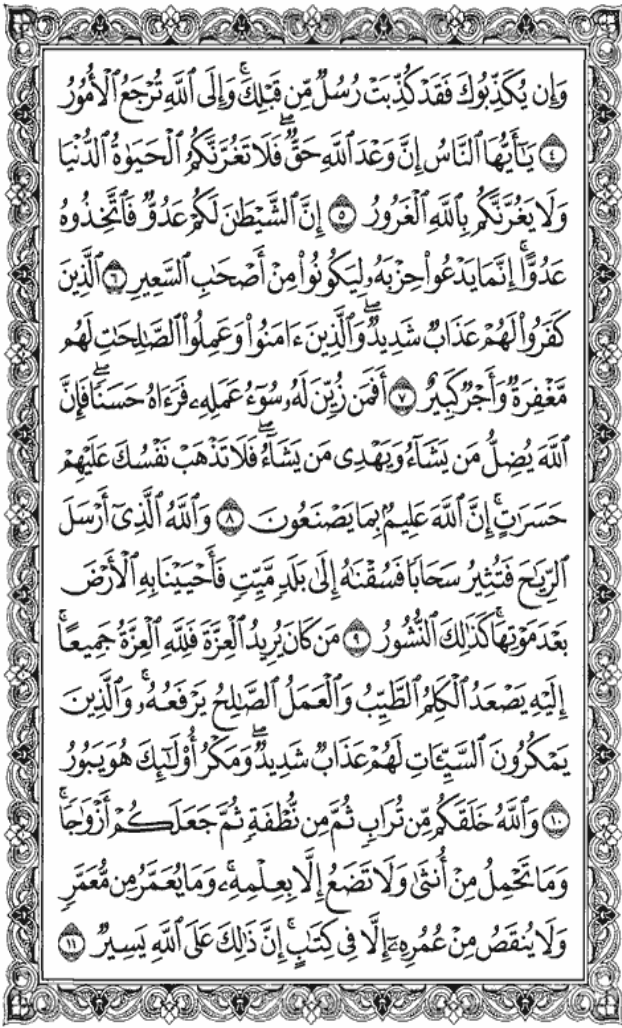 وَإِن يُكَذِّبُوكَ فَقَدْ كُذِّبَتْ رُسُلٌ مِّن قَبْلِكَ ۚ وَإِلَى ٱللَّهِ تُرْجَعُ ٱلْأُمُورُ
٤ يَٰٓأَيُّهَا ٱلنَّاسُ إِنَّ وَعْدَ ٱللَّهِ حَقٌّ ۖ فَلَا تَغُرَّنَّكُمُ ٱلْحَيَوٰةُ ٱلدُّنْيَا
وَلَا يَغُرَّنَّكُم بِٱللَّهِ ٱلْغَرُورُ ٥ إِنَّ ٱلشَّيْطَٰنَ لَكُمْ عَدُوٌّ فَٱتَّخِذُوهُ
عَدُوًّا ۚ إِنَّمَا يَدْعُوا۟ حِزْبَهُۥ لِيَكُونُوا۟ مِنْ أَصْحَٰبِ ٱلسَّعِيرِ ٦ ٱلَّذِينَ
كَفَرُوا۟ لَهُمْ عَذَابٌ شَدِيدٌ ۖ وَٱلَّذِينَ ءَامَنُوا۟ وَعَمِلُوا۟ ٱلصَّٰلِحَٰتِ لَهُم
مَّغْفِرَةٌ وَأَجْرٌ كَبِيرٌ ٧ أَفَمَن زُيِّنَ لَهُۥ سُوٓءُ عَمَلِهِۦ فَرَءَاهُ حَسَنًا ۖ فَإِنَّ
ٱللَّهَ يُضِلُّ مَن يَشَآءُ وَيَهْدِى مَن يَشَآءُ ۖ فَلَا تَذْهَبْ نَفْسُكَ عَلَيْهِمْ
حَسَرَٰتٍ ۚ إِنَّ ٱللَّهَ عَلِيمٌۢ بِمَا يَصْنَعُونَ ٨ وَٱللَّهُ ٱلَّذِىٓ أَرْسَلَ
ٱلرِّيَٰحَ فَتُثِيرُ سَحَابًا فَسُقْنَٰهُ إِلَىٰ بَلَدٍ مَّيِّتٍ فَأَحْيَيْنَا بِهِ ٱلْأَرْضَ
بَعْدَ مَوْتِهَا ۚ كَذَٰلِكَ ٱلنُّشُورُ ٩ مَن كَانَ يُرِيدُ ٱلْعِزَّةَ فَلِلَّهِ ٱلْعِزَّةُ جَمِيعًا ۚ
إِلَيْهِ يَصْعَدُ ٱلْكَلِمُ ٱلطَّيِّبُ وَٱلْعَمَلُ ٱلصَّٰلِحُ يَرْفَعُهُۥ ۚ وَٱلَّذِينَ
يَمْكُرُونَ ٱلسَّيِّـَٔاتِ لَهُمْ عَذَابٌ شَدِيدٌ ۖ وَمَكْرُ أُو۟لَٰٓئِكَ هُوَ يَبُورُ
١٠ وَٱللَّهُ خَلَقَكُم مِّن تُرَابٍ ثُمَّ مِن نُّطْفَةٍ ثُمَّ جَعَلَكُمْ أَزْوَٰجًا ۚ
وَمَا تَحْمِلُ مِنْ أُنثَىٰ وَلَا تَضَعُ إِلَّا بِعِلْمِهِۦ ۚ وَمَا يُعَمَّرُ مِن مُّعَمَّرٍ
وَلَا يُنقَصُ مِنْ عُمُرِهِۦٓ إِلَّا فِى كِتَٰبٍ ۚ إِنَّ ذَٰلِكَ عَلَى ٱللَّهِ يَسِيرٌ ١١